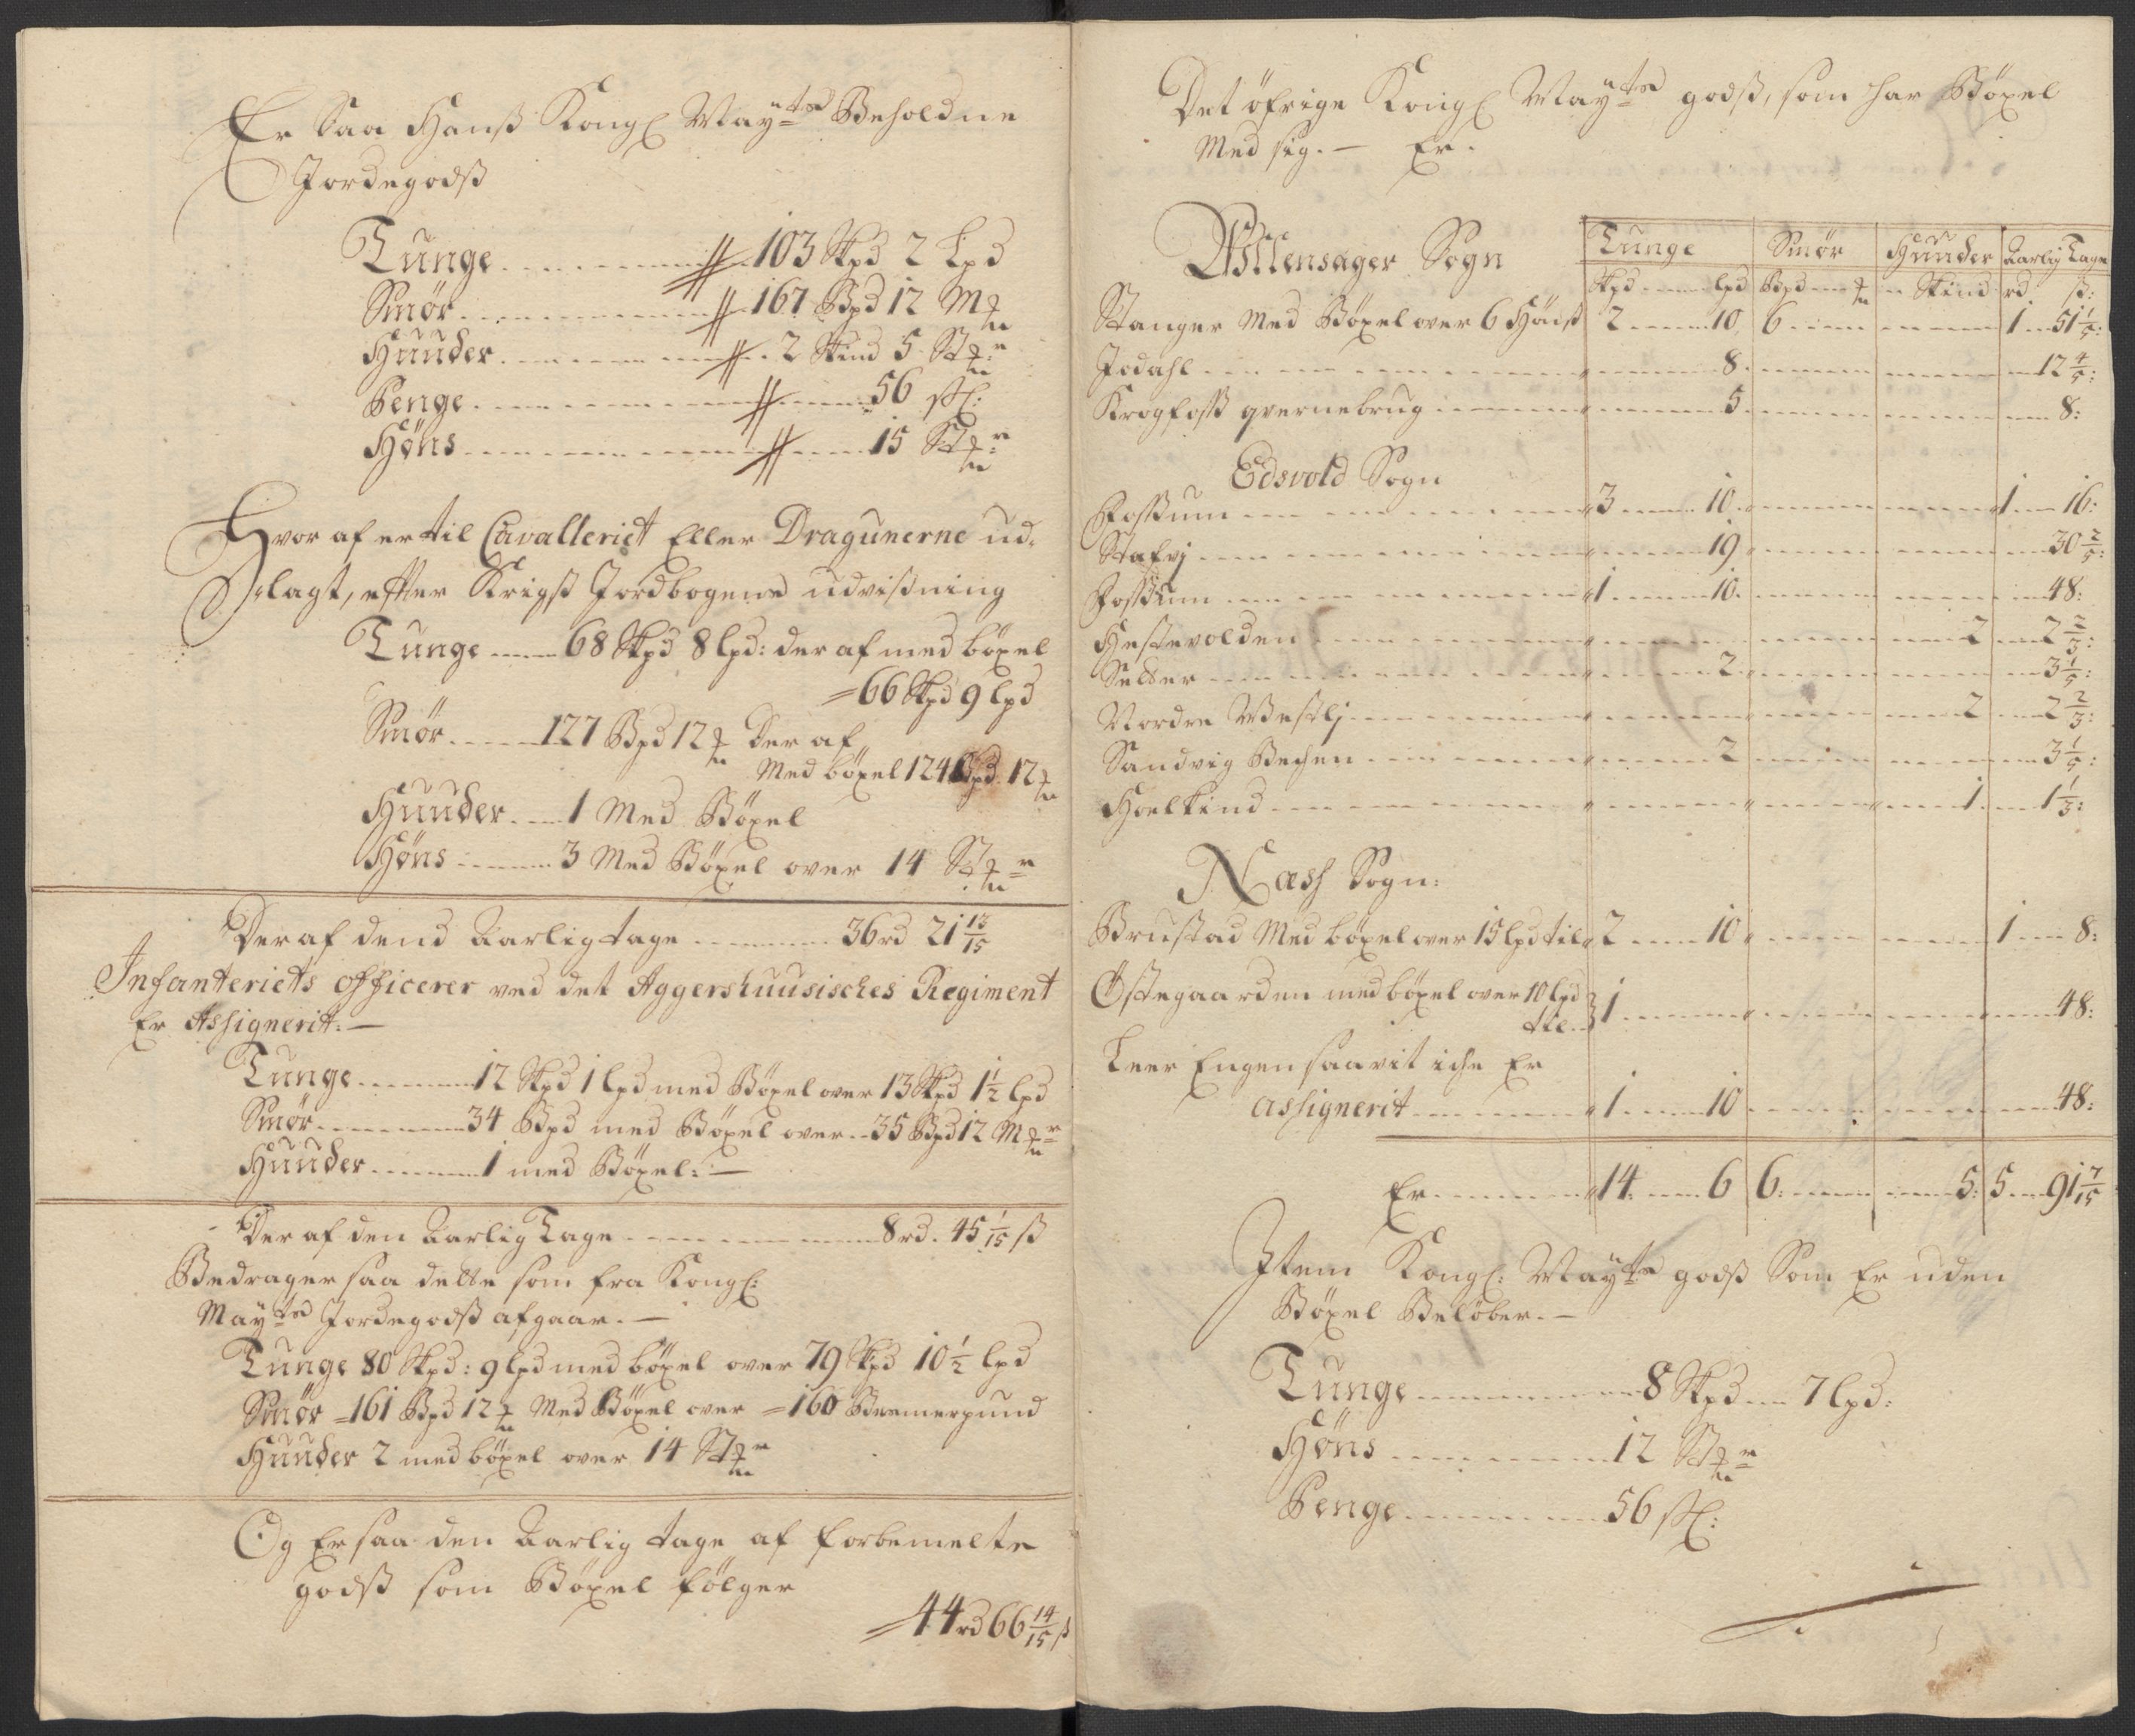 Er Saa Hanß Kong: Mayts Beholdne
Jordegodß
Tunge 103 Skpd 2 Lpd
Smør 167 Bpd 12 Mk
Huuder 2 Skind 5 Stkr
Penge 56 ß:
Høns 15 Stkr
Hvor af er til Cavalleriet Eller Dragunerne ud-
lagt, efter Krigß Jordbogens udvißning
Tunge 68 Skpd 8 lpd: der af med böxel
= 66 Skpd 9 lpd
Smør 127 Bpd 12 Mk der af
Med böxel 124 Bpd 12 Mk
Huuder 1 Med Böxel
Høns 3 Med Böxel over 14 Stkr
Der af dend Aarlig tage 36 rd 21 13/15
Infanteriets Officerer ved det Aggershuusisches Regiment
Er Assignerit. —
Tunge 12 Skpd 1 lpd med Böxel over 13 Skpd 1 1/2 lpd
Smør 34 Bpd med Böxel over 35 Bpd 12 Mkr
Huuder 1 med Böxel: —
Der af den Aarlig Tage 8 rd. 45 1/15 ß
Bedrager saa dette som fra Kong:
Mayts Jordegodß afgaar. —
Tunge 80 Skpd: 9 lpd med böxel over 79 Skpd 10 1/2 lpd
Smør = 161 Bpd 12 Mk Med Böxel over = 160 Bismerpund
Huuder 2 med böxel over 14 Stkr
Og Er saa den Aarlig tage af forbemelte
godß som Böxel fölger
= 44 rd 66 14/15 ß
Det öfrige Kong: Mayts godß, som har Böxel
Med sig. — Er.
Ullensager Sogn Tunge Smør Huuder Aarlig Tage
Skpd lpd Bpd Mk Skind rd ß:
Stanger Med Böxel over 6 Höns 2 10 6 1 51 1/5:
Jodahl 8 12 4/5:
Krogfoß qvernebrug 5 8:
Edsvold Sogn
Foßum 3 10 1 16:
Stafj 19 30 2/5:
Foßum 1 10 48:
Hestevolden 2 2 2/3:
Sutter 2 3 1/5:
Nordre Westlj 2 2 2/3:
Sandvig Bechen 2 3 1/5:
Hoelkind 1 1 1/3:
Næss Sogn:
Brustad Med böxel over 15 lpd til 2 10 1 8:
Östegaarden med böxel over 10 lpd
til 1 48:
Leer Engen saavit iche Er
assignerit 1 10 48:
Er 14 6 6 5: 5 91 7/15
Item Kong: Mayts godß Som Er uden
Böxel Belöber. —
Tunge 8 Skpd 7 lpd:
Høns 12 Stkr
Penge 56 ß: